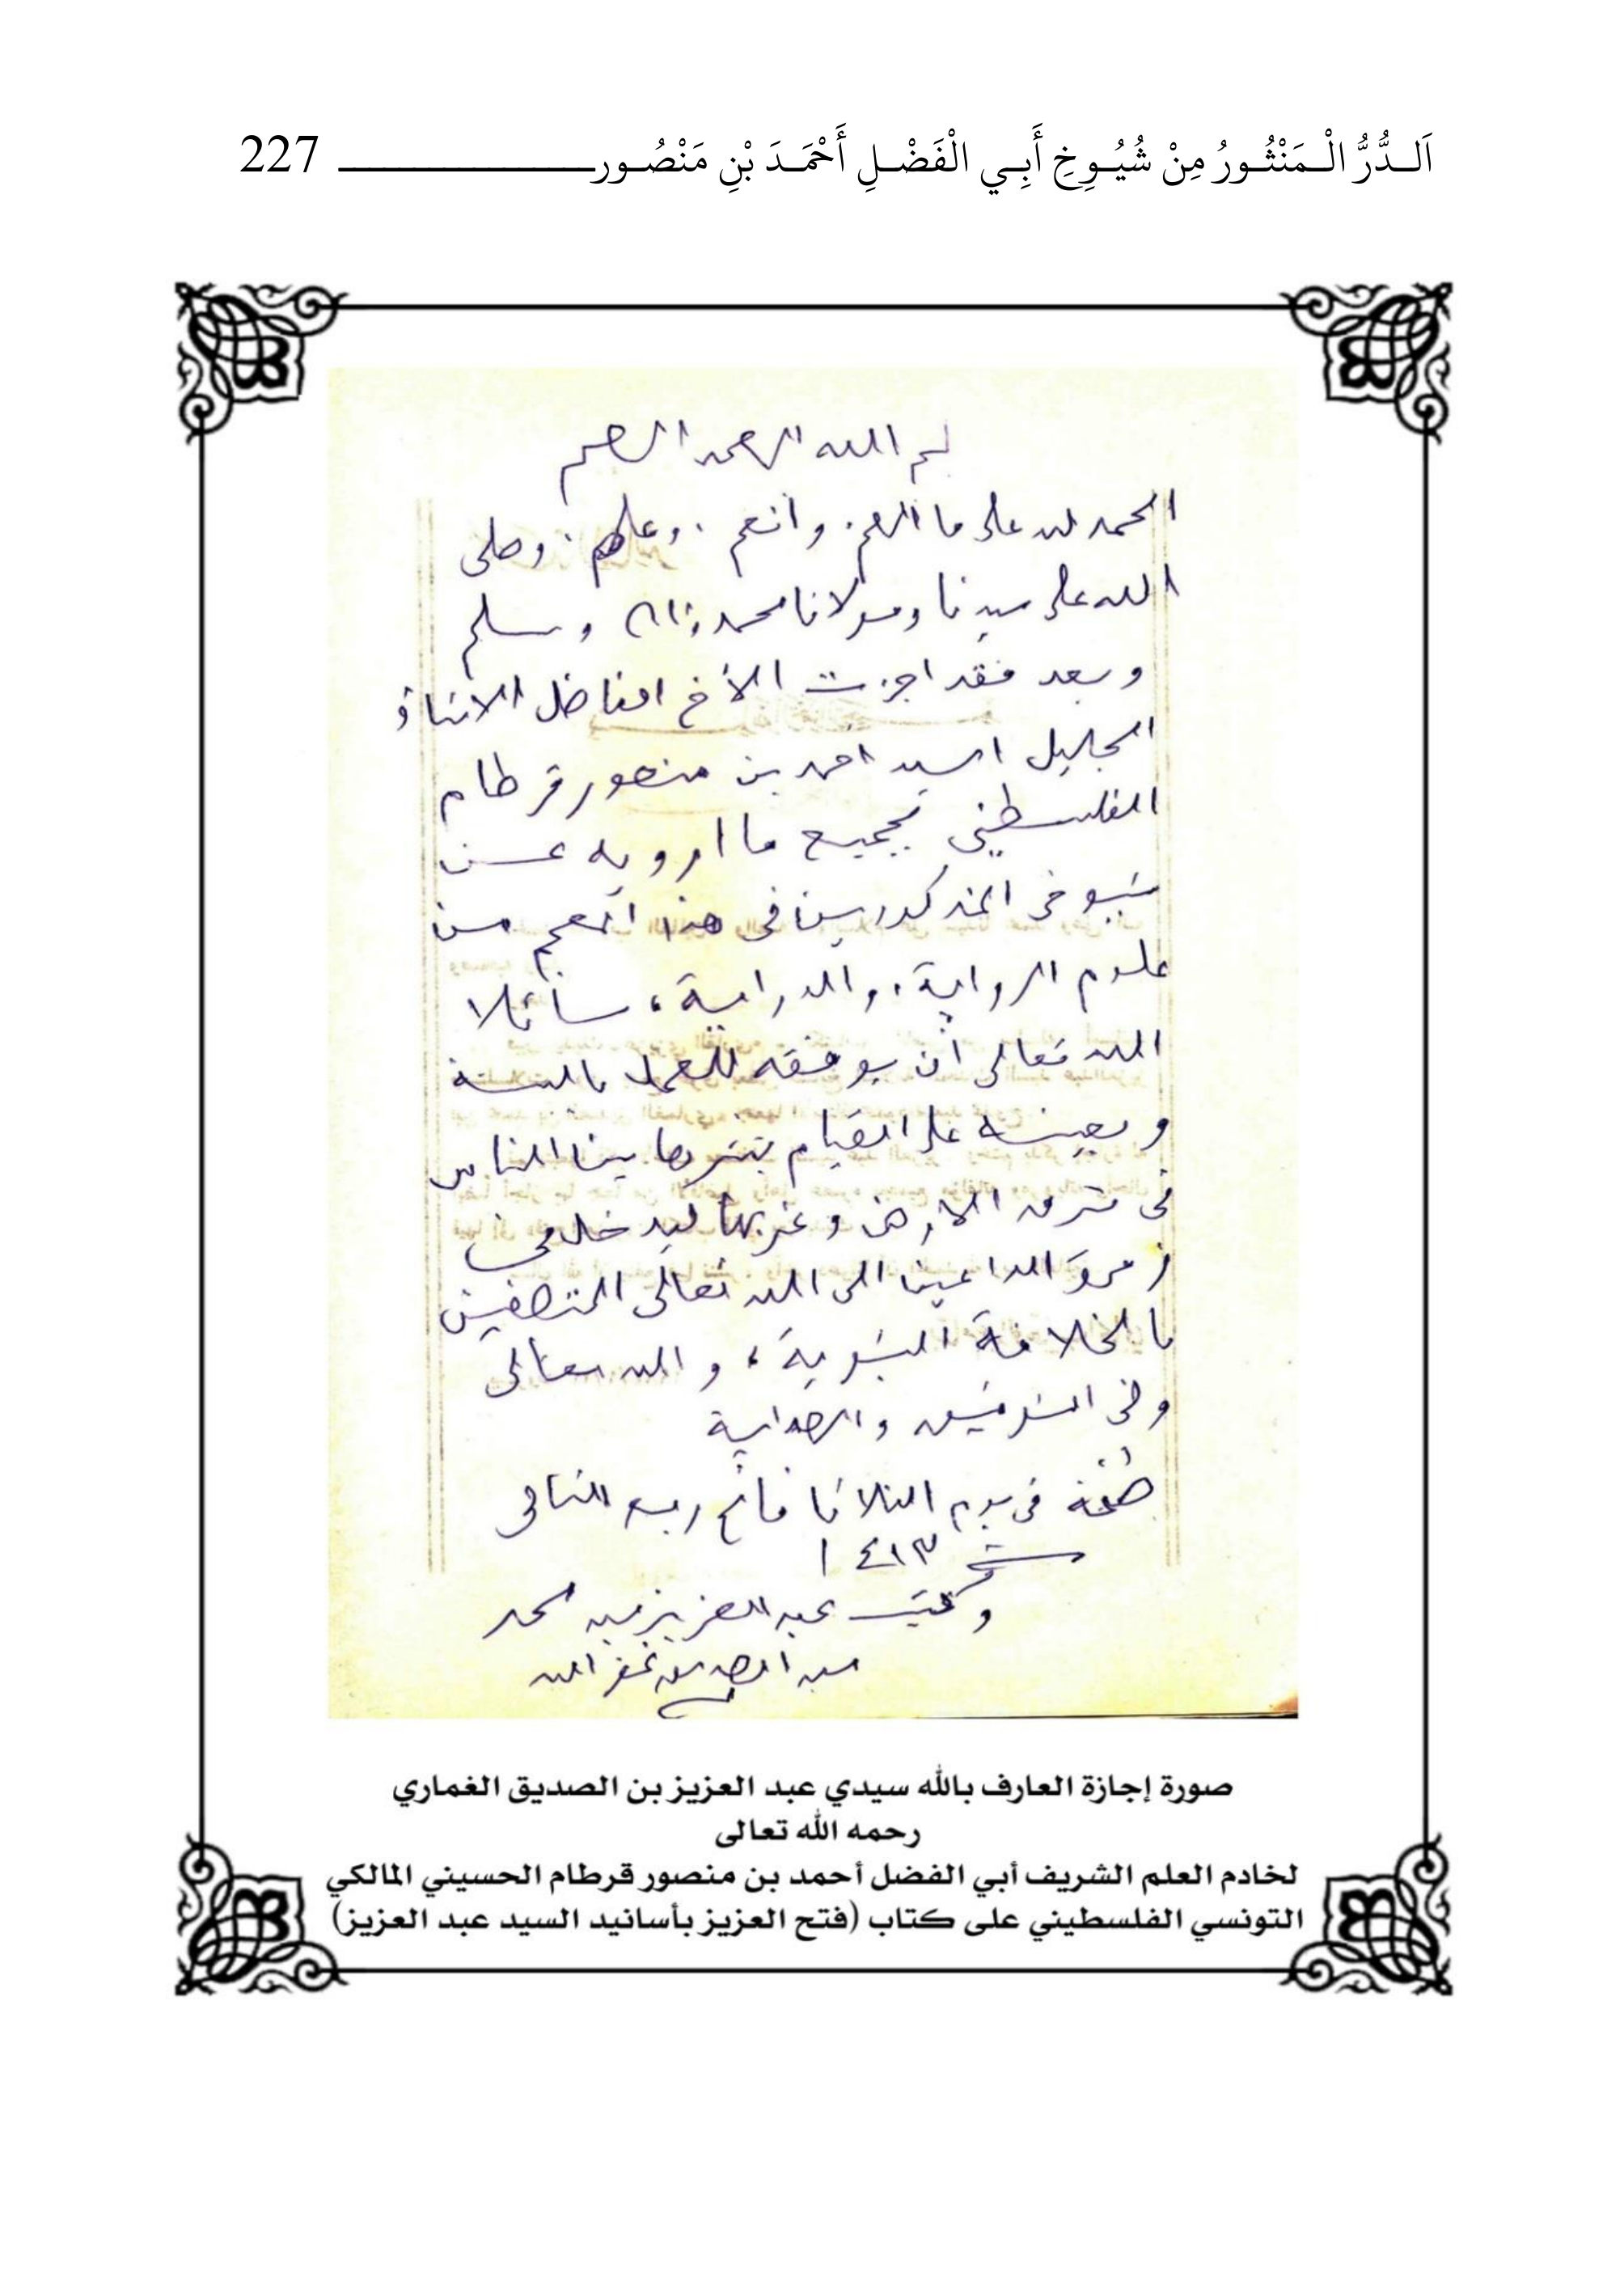 اَلــدُّرُّ الْــمَنْثُــورُ مِنْ شُيُــوخِ أَبِــي الْفَضْــلِ أَحْمَــدَ بْنِ مَنْصُــور 227
بسم الله الرحمن الرحيم
الحمد لله على ما الهم. وأنعم. وعلم. وصلى
الله على سيدنا ومولانا محمد وآله وسلم
وبعد فقد اجزت الأخ الفاضل الاستاذ
الجليل السيد احمد بن منصور قرطام
الفلسطيني بجميع ما ارويه عن
شيوخى المذكورين فى هذا المعجم من
علوم الرواية، والدراية، سائلا
الله تعالى أن يوفقه للعمل بالسنة
ويعينه على القيام بنشرها بين الناس
فى شرق الارض وغربها ليدخل في
زمرة الداعين الى الله تعالى المتصفين
بالخلافة النبوية، والله تعالى
ولى التوفيق والهداية
طنجة فى يوم الثلاثا فاتح ربيع الثانى
سنة ١٤١٣
وكتب عبد العزيز بن محمد
بن الصديق غفر الله
صورة إجازة العارف بالله سيدي عبد العزيز بن الصديق الغماري
رحمه الله تعالى
لخادم العلم الشريف أبي الفضل أحمد بن منصور قرطام الحسيني المالكي
التونسي الفلسطيني على كتاب (فتح العزيز بأسانيد السيد عبد العزيز)